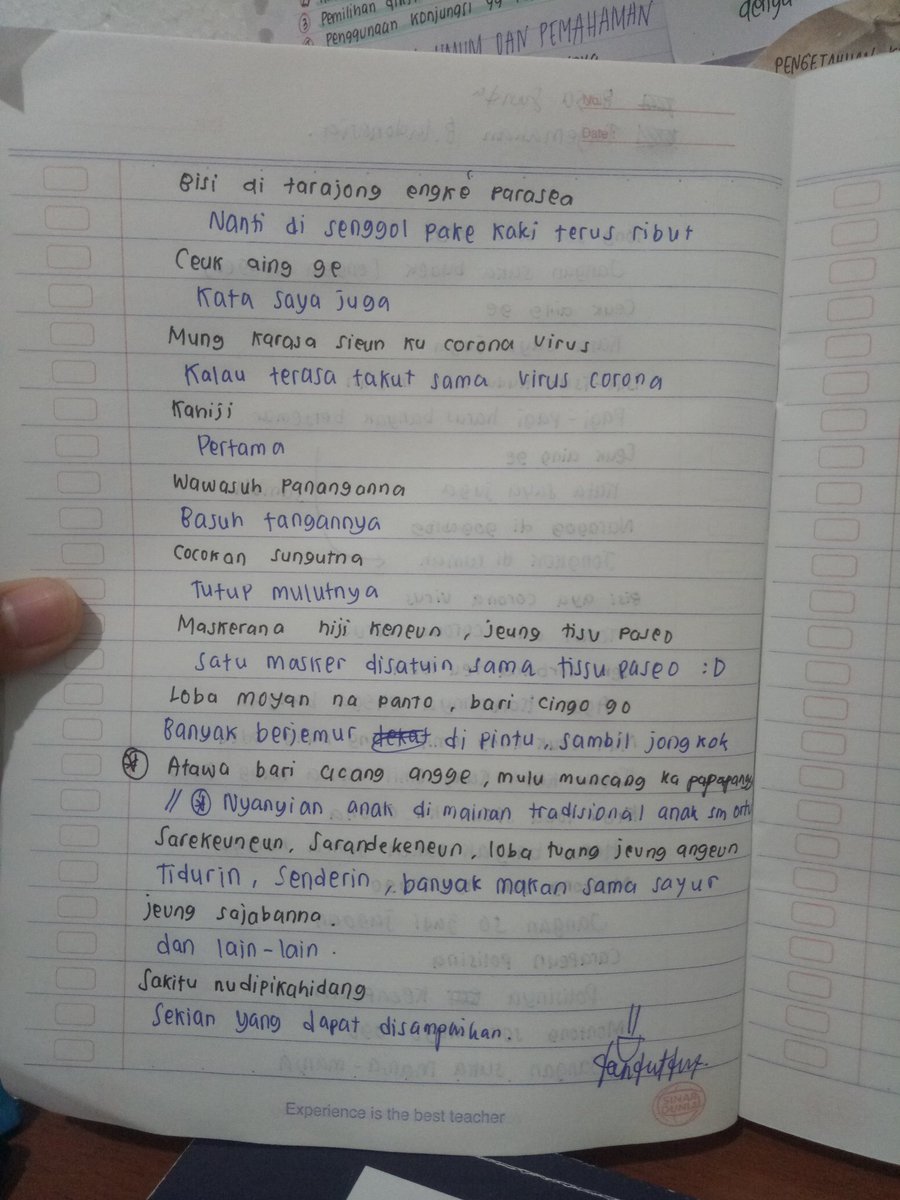 ③ Pemilihan
Penggunaan konjungsi yg
UMUM DAN PEMAHAMAN
PENGETAHUAN
No:
Date:
Bisi di tarajong engké parasea
Nanti di senggol pake kaki terus ribut
Ceuk aing ge
Kata saya juga
Mung karasa sieun ku corona virus
Kalau terasa takut sama virus corona
Kahiji
Pertama
Wawasuh pananganna
Basuh tangannya
Cocokan sungutna
Tutup mulutnya
Maskerana hiji keneun, jeung tisu paseo
Satu masker disatuin sama tissu paseo :D
Loba moyan na panto, bari cingo go
Banyak berjemur dekat di pintu, sambil jongkok
Atawa bari cicang angge, mulu muncang ka papapang
// Nyanyian anak di mainan tradisional anak sm ortu
Sarekeuneun, Sarandekeneun, loba tuang jeung angeun
Tidurin, Senderin, banyak makan sama sayur
jeung sajabanna.
dan lain-lain.
Sakitu nudipikahidang
Sekian yang dapat disampaikan.
//
SINAR DUNIA
Experience is the best teacher